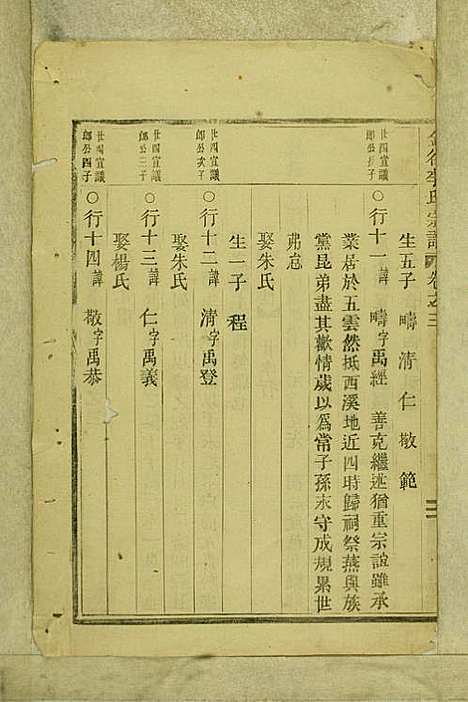 李氏宗譜 卷之三
生五子 疇 清 仁 敬 範
世四宣議郎公長子
○行十一 諱疇 字禹經 善克繼述猶重宗誼雖承
業居於五雲然抵西溪地近四時歸祠祭燕與族
黨昆弟盡其歡情歲以爲常子孫永守成規累世
弗忘
娶朱氏
生一子 程
世四宣議郎公次子
○行十二 諱清 字禹登
娶朱氏
世四宣議郎公三子
○行十三 諱仁 字禹義
娶楊氏
世四宣議郎公四子
○行十四 諱敬 字禹恭